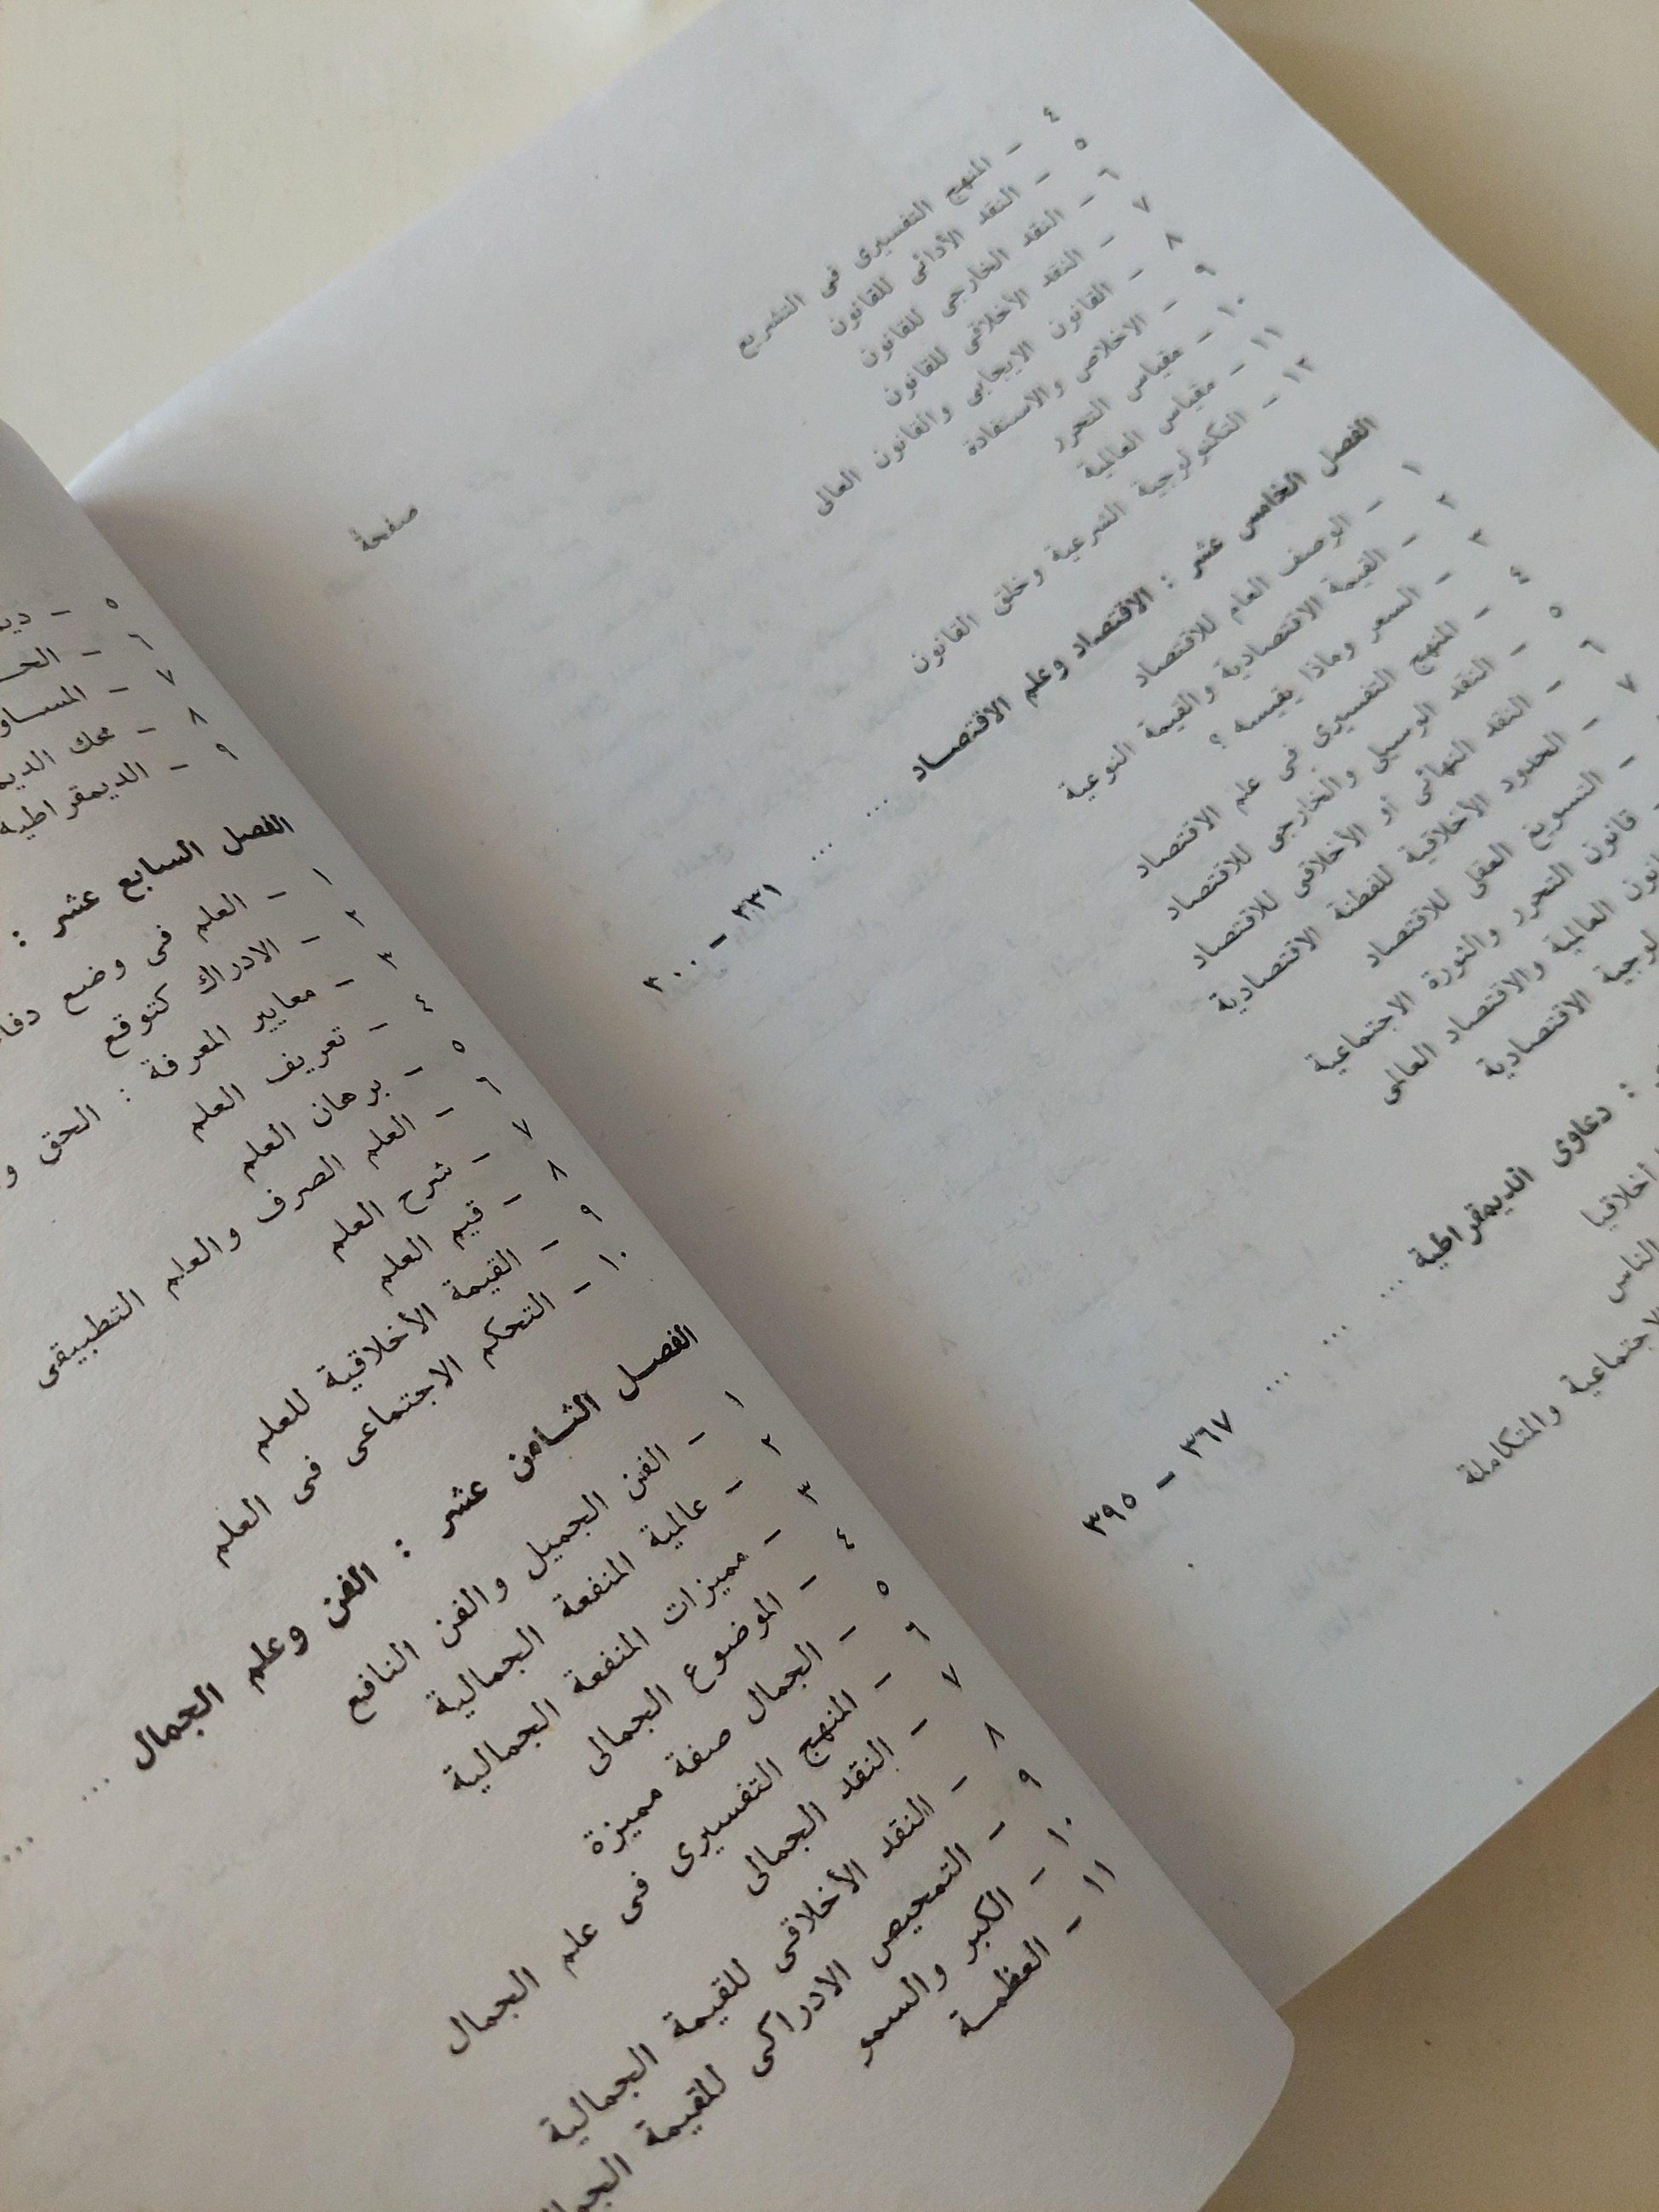 صفحة
٤ - المنهج التفسيرى فى التشريع
٥ - النقد الأداتى للقانون
٦ - النقد الخارجى للقانون
٧ - النقد الأخلاقى للقانون
٨ - القانون الايجابى والقانون العالى
٩ - الاخلاص والاستفادة
١٠ - مقياس التحرر
١١ - مقياس العالمية
١٢ - التكنولوجية الشرعية وخلق القانون
الفصل الخامس عشر : الاقتصاد وعلم الاقتصـاد ... ... ٣٣١ - ٣٠٠
١ - الوصف العام للاقتصاد
٢ - القيمة الاقتصادية والقيمة النوعية
٣ - السعر وماذا يقيسه ؟
٤ - المنهج التفسيرى فى علم الاقتصاد
٥ - النقد الوسيلى والخارجى للاقتصاد
٦ - النقد النهائى أو الأخلاقى للاقتصاد
٧ - الحدود الأخلاقية للفطنة الاقتصادية
- التسويغ العقلى للاقتصاد
- قانون التحرر والثورة الاجتماعية
العالمية والاقتصاد العالمى
الاقتصادية
: دعاوى الديمقراطية ... ... ... ٣٦٧ - ٣٩٥
أخلاقيا
الناس
والمتكاملة
٥ -
٦ -
٧ -
٨ - محك
٩ - الديمقراطية
الفصل السابع عشر :
١ - العلم فى وضع
٢ - الادراك كتوقع
٣ - معايير المعرفة : الحق
٤ - تعريف العلم
٥ - برهان العلم
٦ - العلم الصرف والعلم التطبيقى
٧ - شرح العلم
٨ - قيم العلم
٩ - القيمة الأخلاقية للعلم
١٠ - التحكم الاجتماعى فى العلم
الفصـل الثـامن عشر : الفن وعلم الجمال ... ...
١ - الفن الجميل والفن النافع
٢ - عالمية المنفعة الجمالية
٣ - مميزات المنفعة الجمالية
٤ - الموضوع الجمالى
٥ - الجمال صفة مميزة
٦ - المنهج التفسيرى فى علم الجمال
٧ - النقد الجمالى
٨ - النقد الأخلاقى للقيمة الجمالية
٩ - التمحيص الادراكى للقيمة
١٠ - الكبر والسمو
١١ - العظمـة